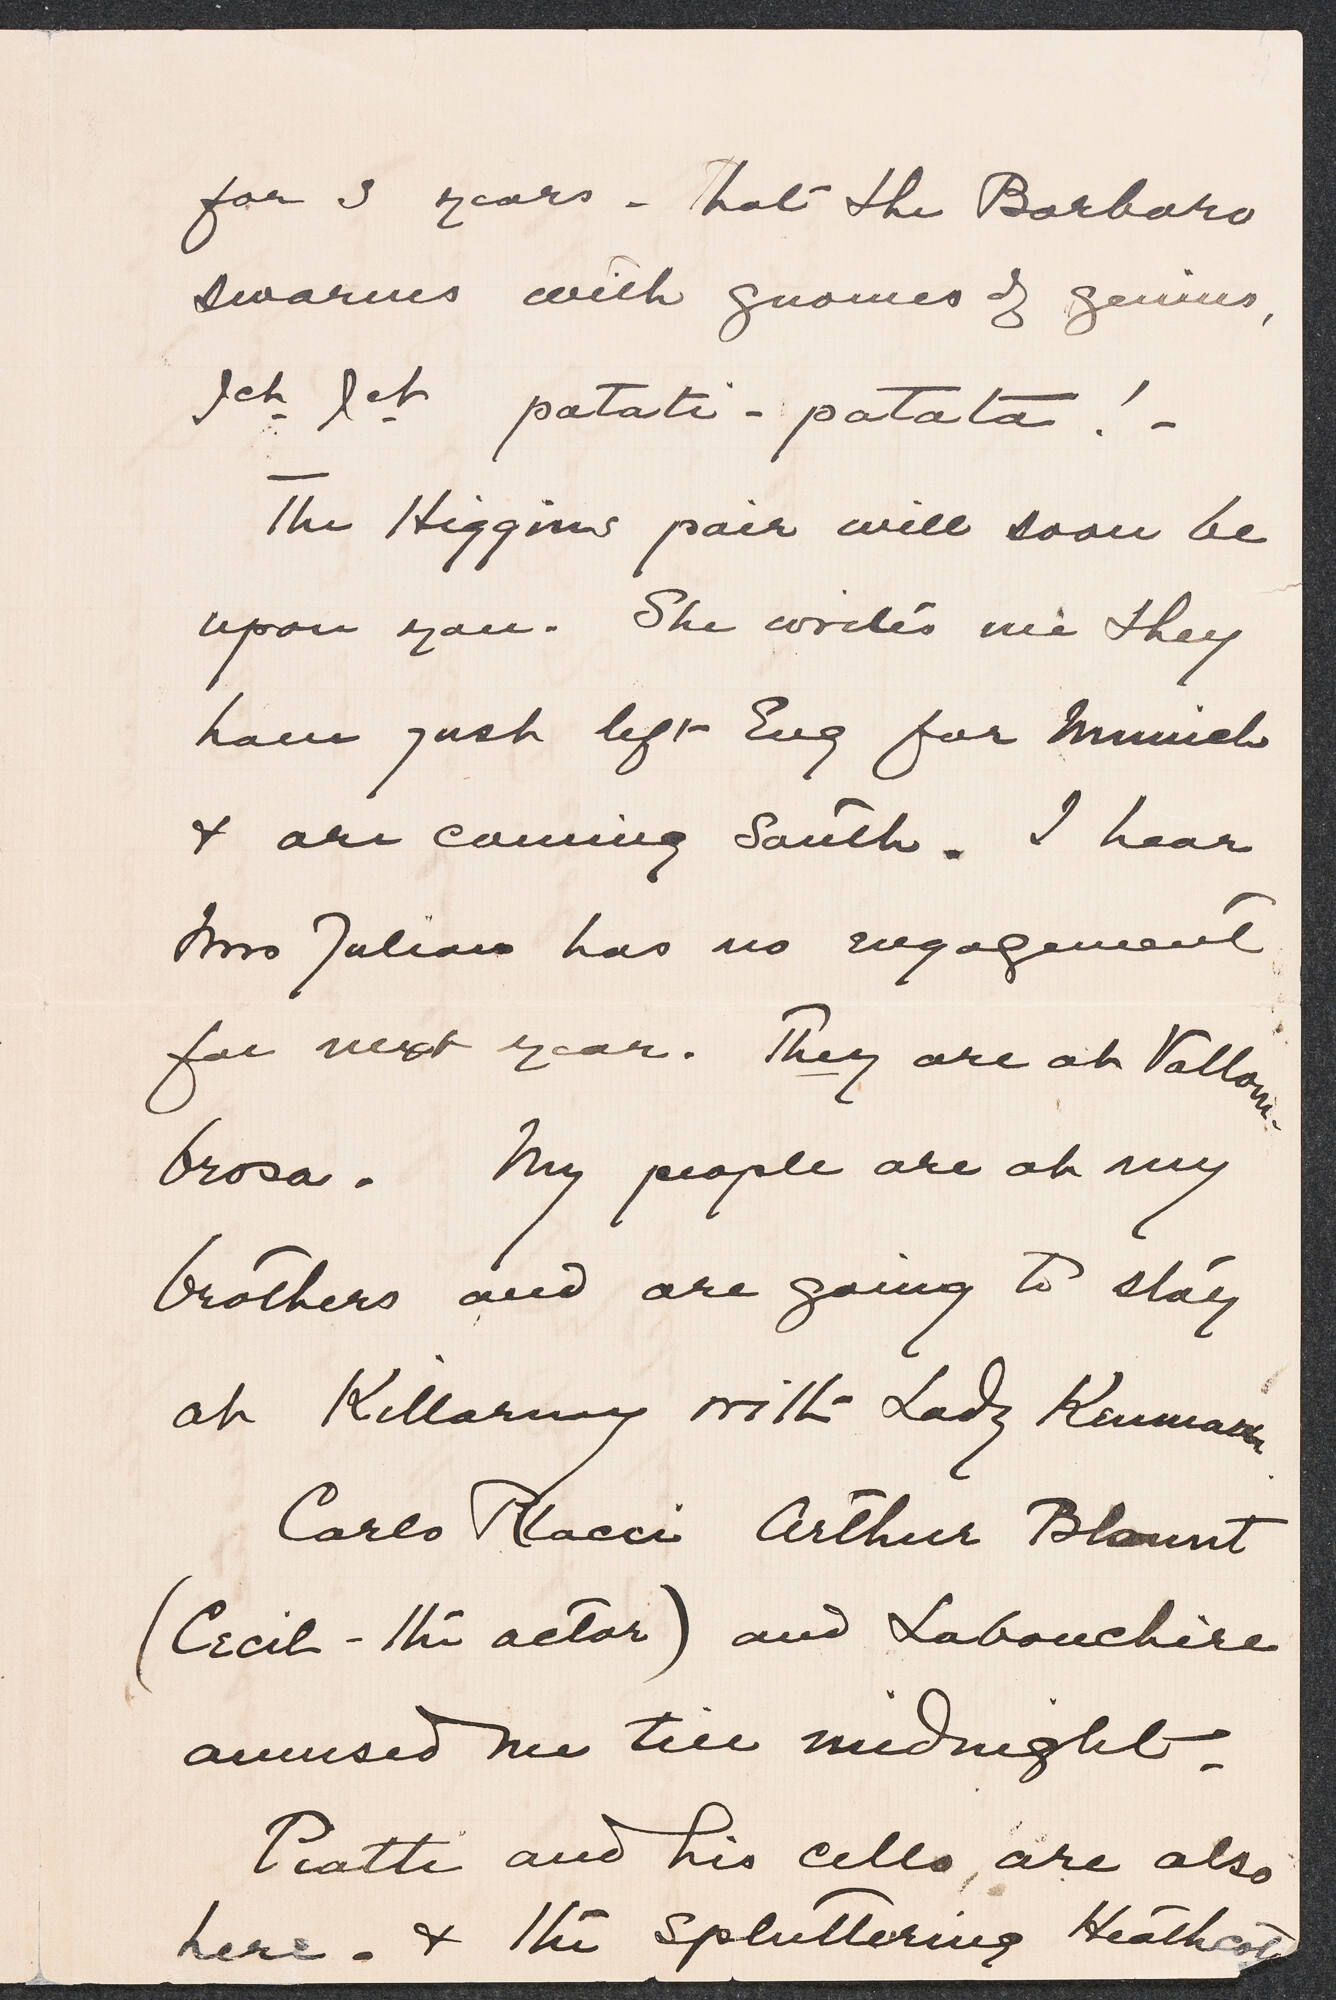 for 3 years - that the Barbaro
swarms with gnomes of genius,
&ct. &ct. patati - patata! -
The Higgins pair will soon be
upon you. She writes me they
have just left Eng for Munich
& are coming South. I hear
Mrs Julian has no engagement
for next year. They are at Vallom-
brosa. My people are at my
brothers and are going to stay
at Killarney with Lady Kenmare
Carlo Placci Arthur Blount
(Cecil - the actor) and Labouchere
amused me till midnight -
Piatti and his cello, are also
here. & the spluttering Heathcote